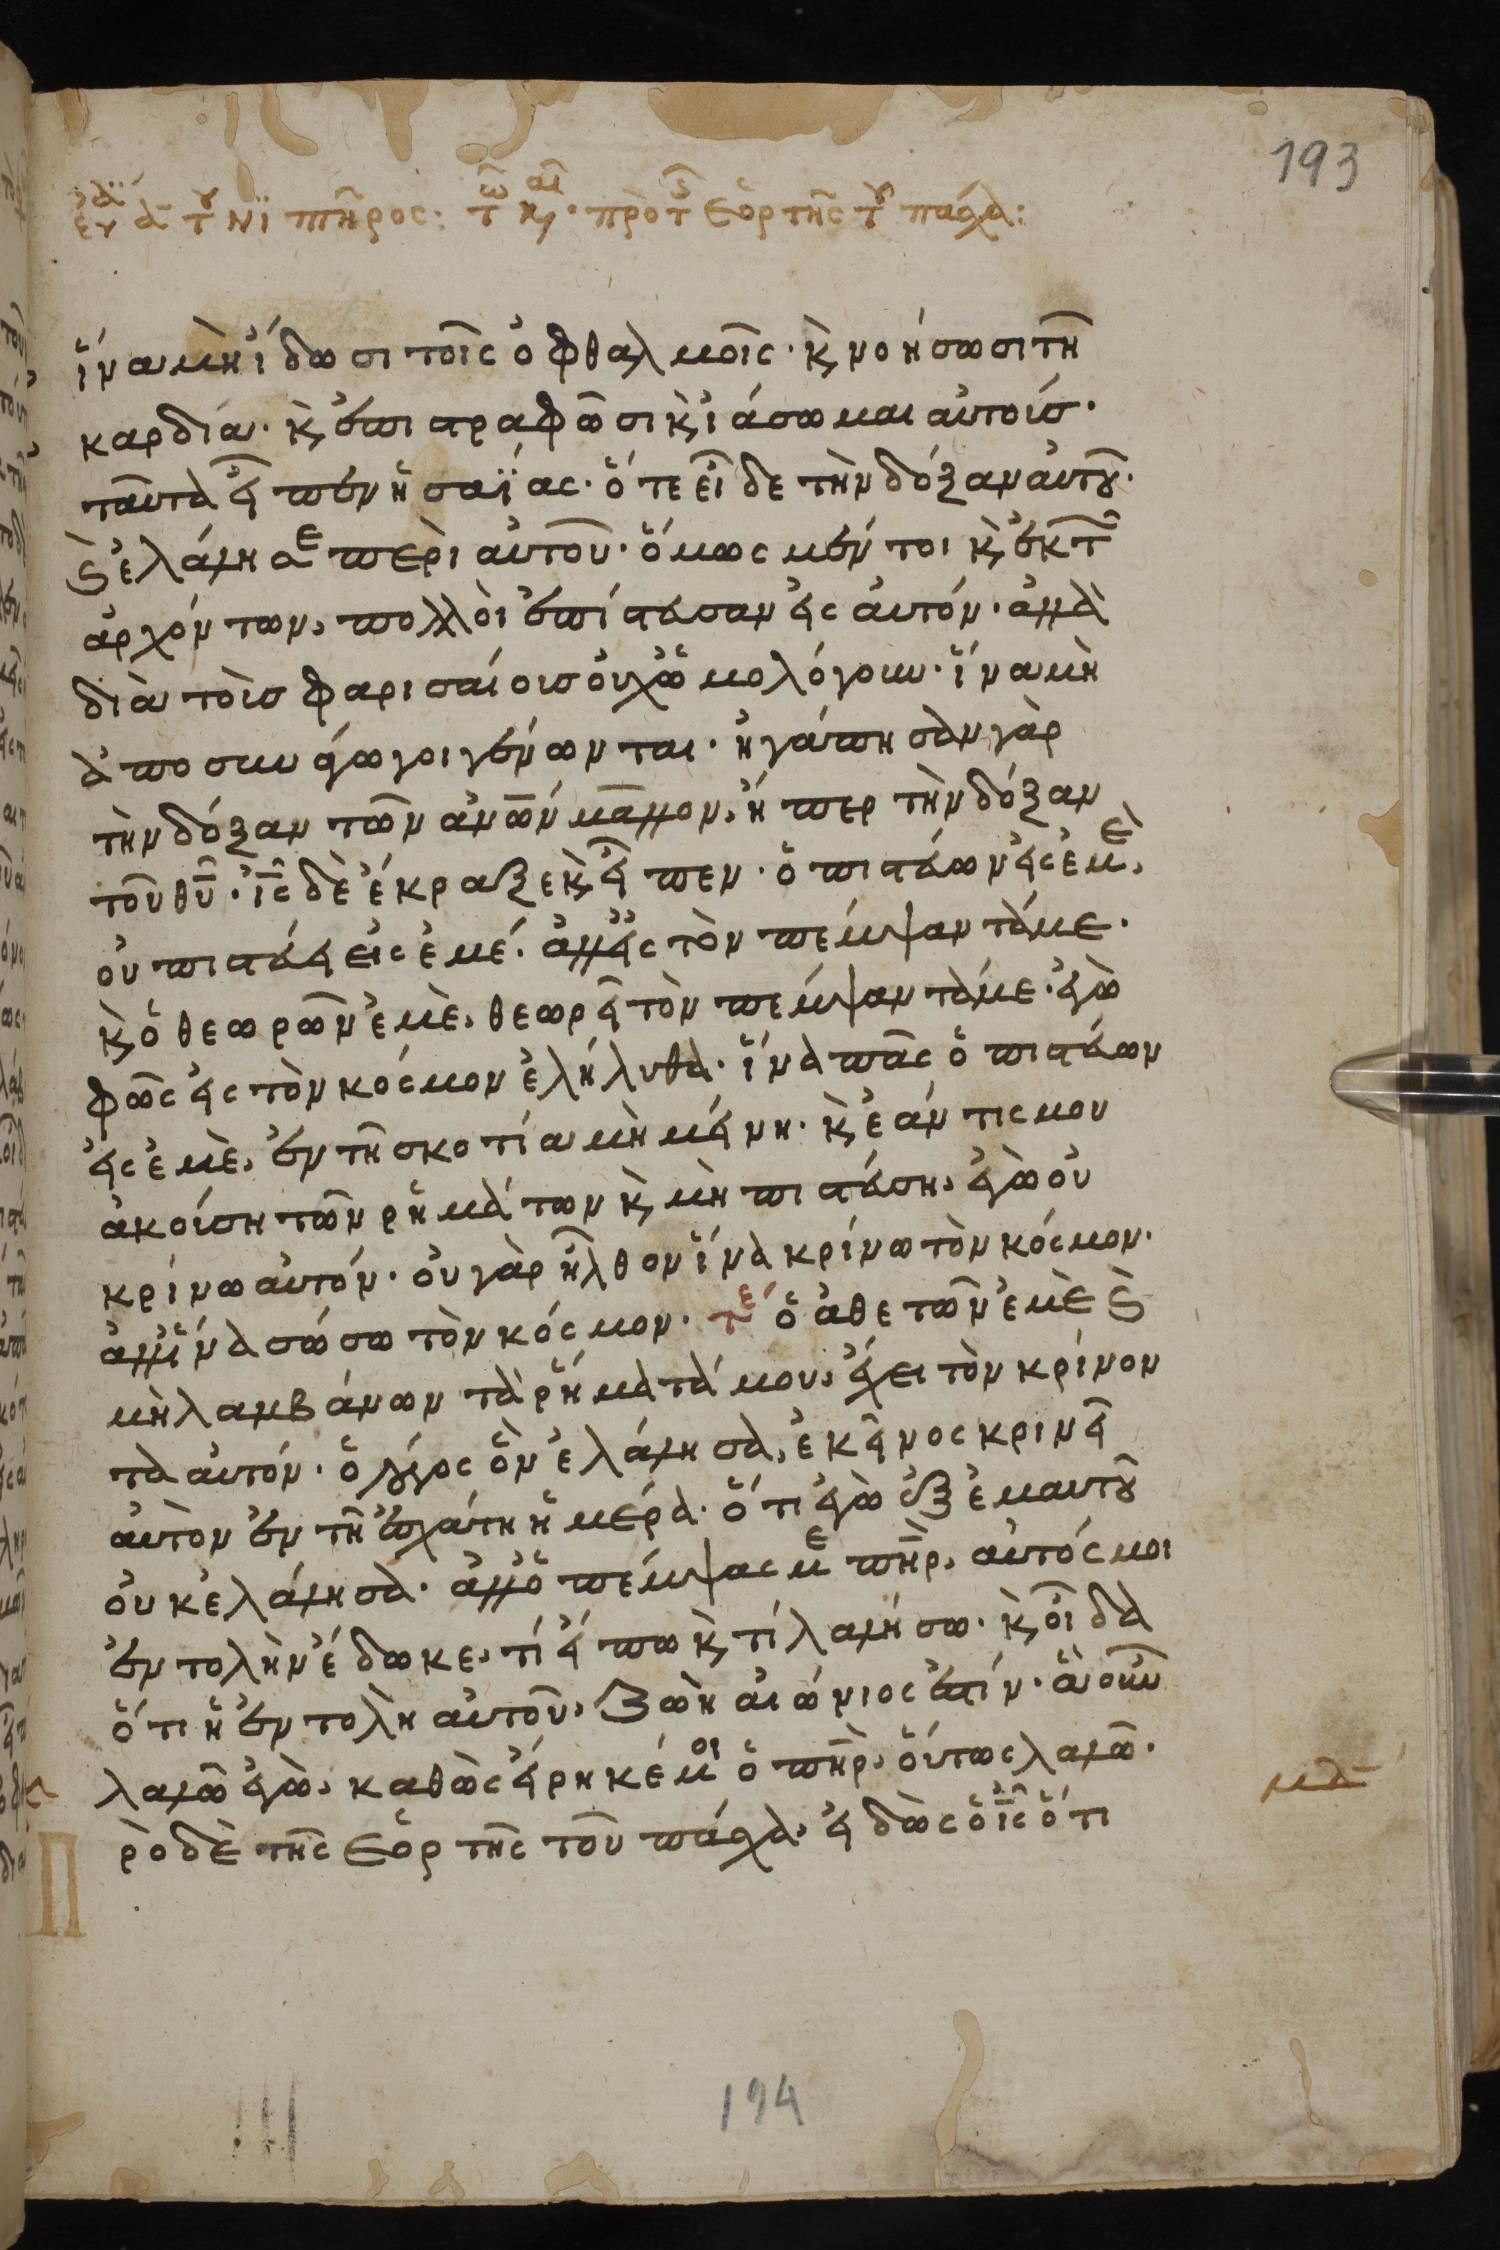 193
ἵνα μὴ ἴδωσι τοῖς ὀφθαλμοῖς· κ̀ νοήσωσι τῆ
καρδία· κ̀ ἐπιστραφῶσι κ̀ ἰάσωμαι αὐτούσ·
ταῦτα εἶπεν ἡσαΐας· ὅτε εἶδε τὴν δόξαν αὐτοῦ·
κ̀ ἐλάλησε περὶ αὐτοῦ· ὅμως μέν τοι κ̀ ἐκ τῶν
ἀρχόντων, πολλοὶ ἐπίστευσαν εἰς αὐτόν· ἀλλὰ
διὰ τοὺσ φαρισαίουσ οὐχ ὡμολόγουν· ἵνα μὴ
ἀποσυνάγωγοι γένωνται· ἠγάπησαν γὰρ
τὴν δόξαν τῶν ἀνῶν μᾶλλον, ἤπερ τὴν δόξαν
τοῦ θῦ· ἰς δὲ ἔκραξε κ̀ εἶπεν· ὁ πιστεύων εἰς ἐμὲ,
οὐ πιστεύει εἰς ἐμέ· ἀλλ' εἰς τὸν πέμψαντά με·
κ̀ ὁ θεωρῶν ἐμὲ, θεωρεῖ τὸν πέμψαντά με· ἐγὼ
φῶς εἰς τὸν κόσμον ἐλήλυθα· ἵνα πᾶς ὁ πιστεύων
εἰς ἐμὲ, ἐν τῆ σκοτία μὴ μείνη· κ̀ ἐάν τις μου
ἀκούση τῶν ῥημάτων κ̀ μὴ πιστεύση, ἐγὼ οὐ
κρίνω αὐτόν· οὐ γὰρ ἦλθον ἵνα κρίνω τὸν κόσμον·
ἀλλ' ἵνα σώσω τὸν κόσμον· τε ὁ ἀθετῶν ἐμὲ κ̀
μὴ λαμβάνων τὰ ῥήματά μου, ἔχει τὸν κρίνον
τα αὐτόν· ὁ λόγος ὃν ἐλάλησα, ἐκεῖνος κρινεῖ
αὐτὸν ἐν τῆ ἐσχάτη ἡμέρα· ὅτι ἐγὼ ἐξ ἐμαυτοῦ
οὐκ ἐλάλησα· ἀλλ' ὁ πέμψας με πηρ, αὐτός μοι
ἐντολὴν ἔδωκε, τί εἴπω κ̀ τί λαλήσω· κ̀ οἶδα
ὅτι ἡ ἐντολὴ αὐτοῦ, ζωὴ αἰώνιος ἐστίν· ἃ οὖν
λαλῶ ἐγὼ, καθὼς εἴρηκέ μοι ὁ πηρ, οὕτως λαλῶ·
Πρὸ δὲ τῆς ἑορτῆς τοῦ πάσχα, εἰδὼς ὁ ἰς ὅτι
194